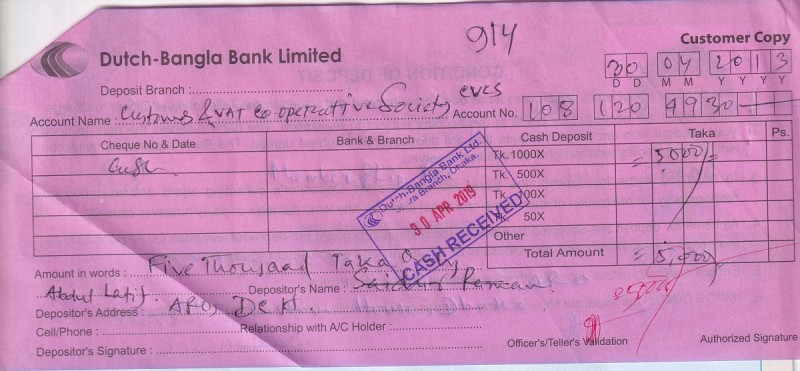 914
Customer Copy
Dutch-Bangla Bank Limited
30 04 2013
D D M M Y Y Y Y
Deposit Branch :
Account Name : Customs & VAT Co-operative Society CVCS Account No. 108 120 4930
Cheque No & Date Bank & Branch Cash Deposit Taka Ps.
Cash Tk. 1000X = 5000/=
Tk. 500X
Tk. 100X
Tk. 50X
Other
Total Amount = 5,000/
Dutch-Bangla Bank Ltd.
Branch, Dhaka.
30 APR 2019
CASH RECEIVED
Amount in words : Five Thousaad Taka
Abdul Latif. Depositor's Name : Saidur Roman.
Depositor's Address : APO, Dekt.
Cell/Phone : Relationship with A/C Holder :
Depositor's Signature : Officer's/Teller's Validation Authorized Signature